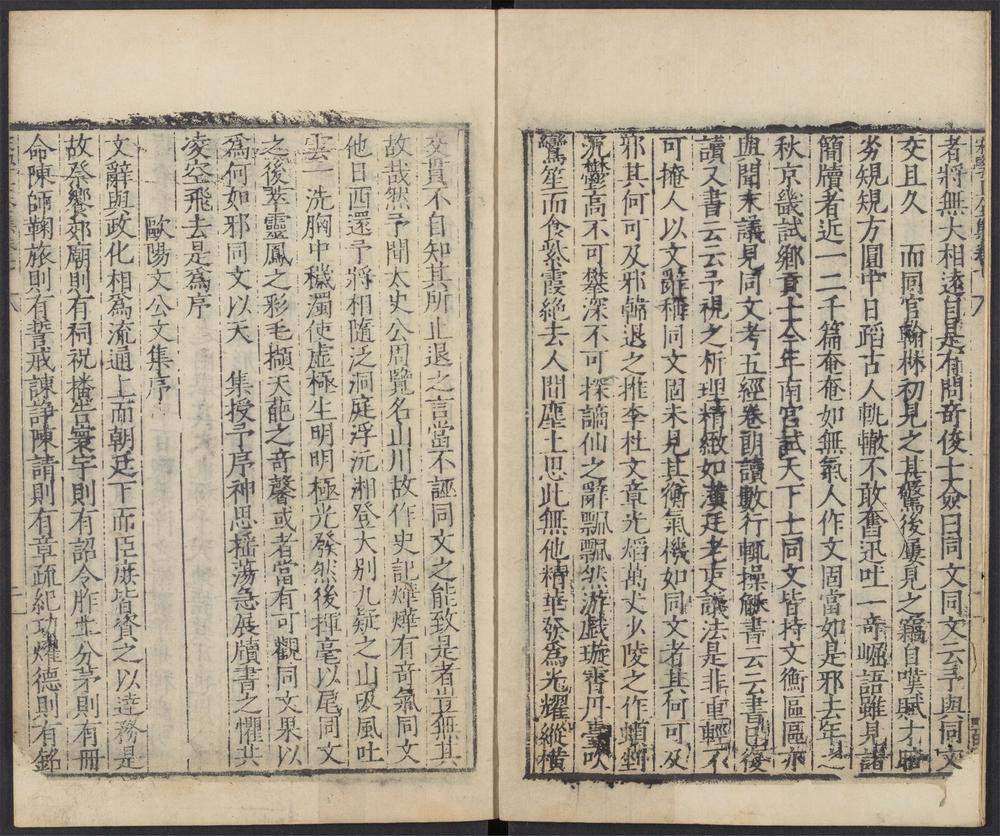 者將無大相遠自是有問奇俊士必曰同文同文云予與同文
交且久 而同官翰林初見之甚驚後屢見之竊自嘆賦才
劣規規方圓中日蹈古人軌轍不敢奮迅吐一奇崛語雖見諸
簡牘者近一二千篇奄奄如無氣人作文固當如是邪去年之
秋京畿試鄉貢士今年南宮試天下士同文皆持文衡區區亦
與聞末議見同文考五經卷朗讀數行輒操觚書云云書已復
讀又書云云予視之析理精緻如漢廷老吏議法是非重輕不
可掩人以文辭稱同文固未見其衡氣機如同文者其何可及
邪其何可及邪韓退之推李杜文章光熖萬丈少陵之作
高不可攀深不可探謫仙之辭飄飄然游戲璇霄丹臺吹
鸞笙而食紫霞絶去人間塵土思此無他精華發為光耀縱横
交貫不自知其所止退之之言當不誣同文之能致是者豈無其
故哉然予聞太史公周覽名山川故作史記燁燁有奇氣同文
他日西還予將相隨泛洞庭浮沅湘登大别九疑之山吸風吐
雲一洗胸中穢濁使虚極生明明極光發然後揮毫以尾同文
之後萃靈鳳之彩毛擷天葩之奇馨或者當有可觀同文果以
為何如邪同文以天 集授予序神思播蕩急展牘書之懼其
凌空飛去是為序
歐陽文公文集序
文辭與政化相為流通上而朝廷下而臣庶皆資之以達務是
故祭饗郊廟則有祠祝播告寰宇則有詔令胙土分茅則有冊
命陳師鞠旅則有誓戒諫諍陳請則有章疏紀功燿德則有銘